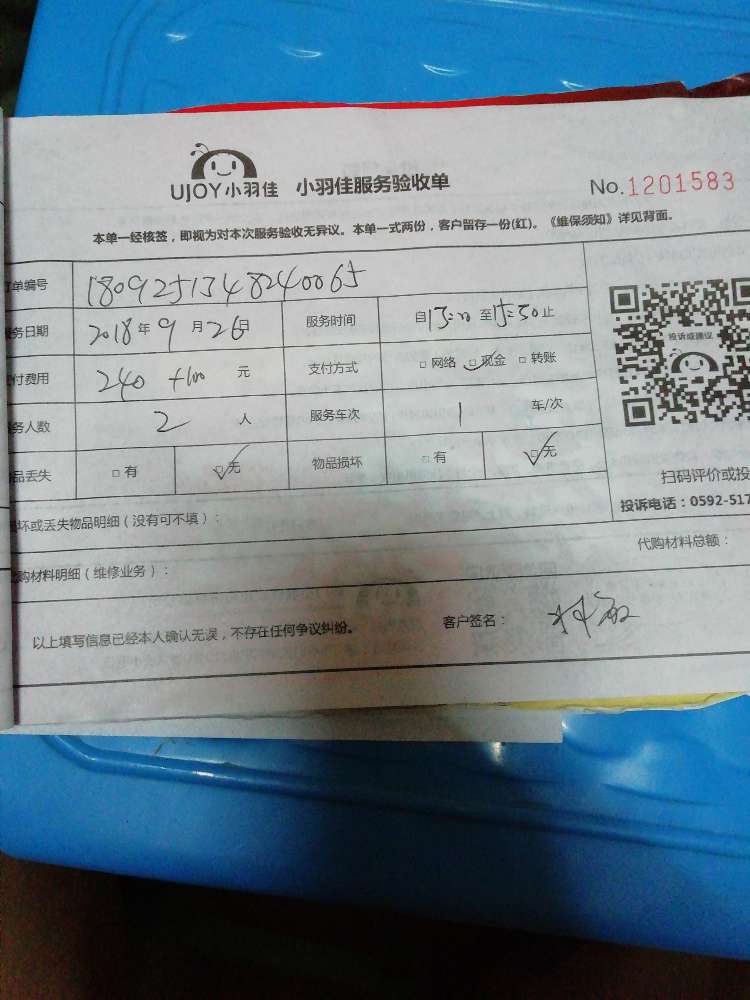 UJOY小羽佳 小羽佳服务验收单 No.1201583
本单一经核签，即视为对本次服务验收无异议。本单一式两份，客户留存一份(红)。《维保须知》详见背面。
单编号 1809251348240065
务日期 2018年9月26日 服务时间 自13:20至15:50止
付费用 240 +100 元 支付方式 □网络 □现金 □转账
务人数 2 人 服务车次 1 车/次
品丢失 □有 □无 物品损坏 □有 □无
投诉或建议
扫码评价或投
投诉电话：0592-517
坏或丢失物品明细（没有可不填）：
购材料明细（维修业务）： 代购材料总额：
以上填写信息已经本人确认无误，不存在任何争议纠纷。 客户签名：